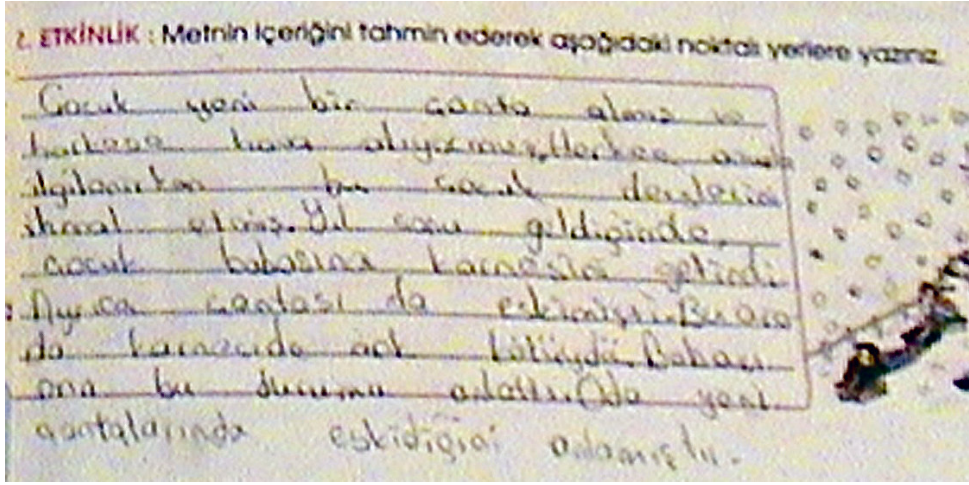 2. ETKİNLİK : Metnin içeriğini tahmin ederek aşağıdaki noktalı yerlere yazınız.
Çocuk yeni bir çanta almış ve
herkese hava atıyormuş. Herkes
ilgilenirken bu çocuk derslerini
ihmal etmiş. Yıl sonu geldiğinde,
çocuk babasına karnesini getirdi.
Ayrıca çantası da eskimişti. Bu ara
da karnesi de çok kötüydü. Babası
ona bu durumu anlattı. O da yeni
çantalarında eskidiğini anlamıştı.